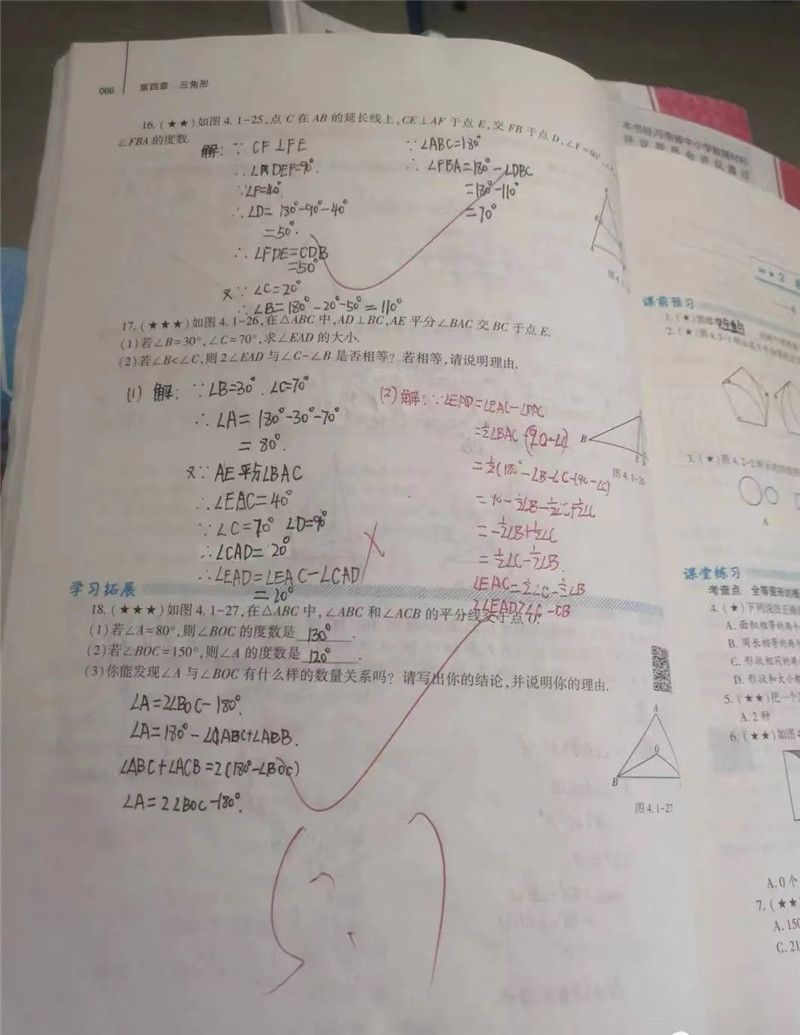 066 第四章 三角形
16.(★★)如图4.1-25,点C在AB的延长线上,CE⊥AF于点E,交FB于点D,
∠FBA的度数.
解: ∵ CF⊥FE
∴ ∠DEF=90°.
∵∠F=40°.
∴ ∠D= 180°-90°-40°
=50°.
∴ ∠FDE=CDB
=50°
又∵ ∠C=20°
∴ ∠B=180°-20°-50°=110°
∵∠ABC=180°
∴ ∠FBA=180°-∠DBC
=180°-110°
=70°
17.(★★★)如图4.1-26,在△ABC中,AD⊥BC,AE平分∠BAC交BC于点E.
(1)若∠B=30°,∠C=70°,求∠EAD的大小.
(2)若∠B<∠C,则2∠EAD与∠C-∠B是否相等?若相等,请说明理由.
(1) 解: ∵∠B=30°.∠C=70°
∴ ∠A= 180°-30°-70°
= 80°.
又∵ AE平分∠BAC
∴∠EAC=40°
∵ ∠C=70° ∠D=90°
∴∠CAD=20°
∴∠EAD=∠EAC-∠CAD
=20°
(2)解:∵∠EAD=∠EAC-∠DAC
=½∠BAC-(90-∠C)
=½(180°-∠B-∠C)-(90-∠C)
=-½∠B+½∠C
=½∠C-½∠B.
∠EAC=½∠C-½∠B
B
图4.1-26
学习拓展
18.(★★★)如图4.1-27,在△ABC中,∠ABC和∠ACB的平分线交于点O.
(1)若∠A=80°,则∠BOC的度数是 130° .
(2)若∠BOC=150°,则∠A的度数是 120° .
(3)你能发现∠A与∠BOC有什么样的数量关系吗?请写出你的结论,并说明你的理由.
∠A=2∠BOC-180°.
∠ABC+∠ACB=2(180°-∠BOC)
∠A=2∠BOC-180°.
A
O
B
图4.1-27
本书经河南省中小学教辅材料
评议委员会评议通过
课前预习
1.(★)
2.(★)
3.(★)图4.2-2
A
课堂练习
考查点 全等图形的
4.(★)下列说法正确
A.面积相等的两个
B.周长相等的两个
C.形状相同的两个
D.形状和大小
5.(★★)把一个
A.2种
6.(★★)如图4
A.0个
7.(★★
A.150
C.21